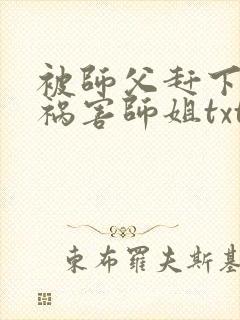 被師父赶下
祸害師姐txt
東布羅夫斯基